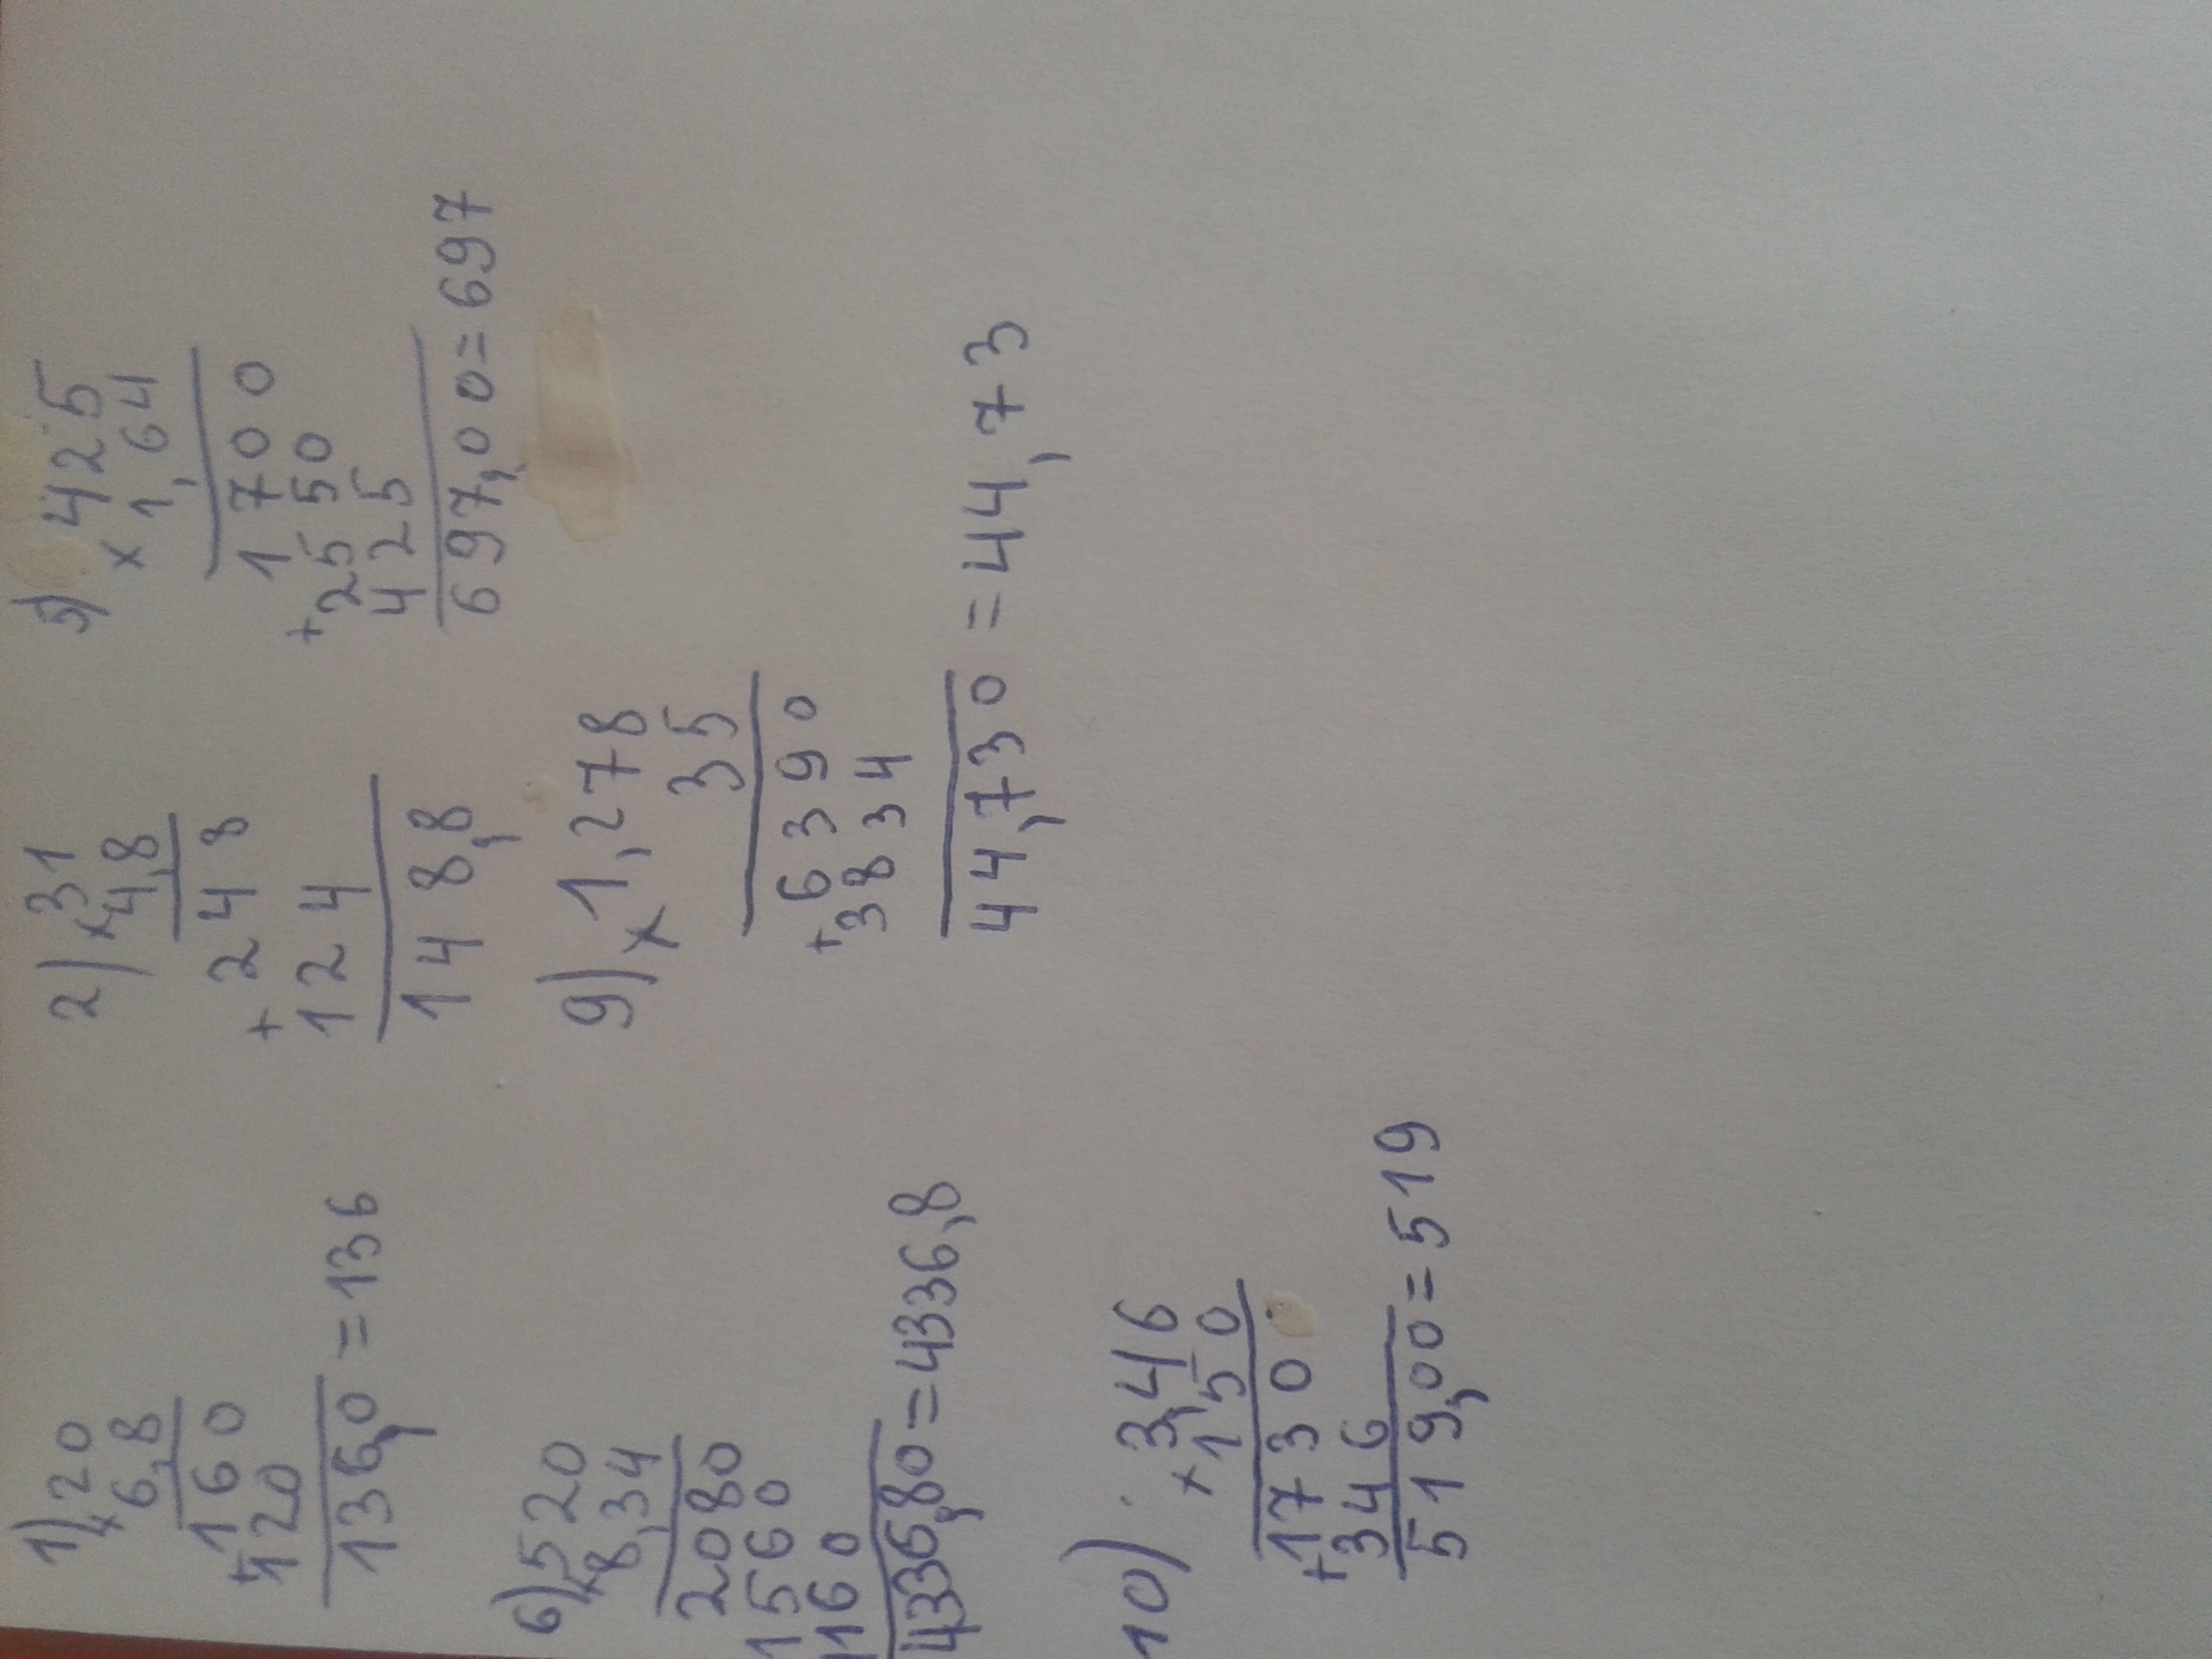 1) 20
× 6,8
160
+ 120
136,0 = 136
2) 31
× 4,8
248
+ 124
148,8
425
× 1,64
1700
+ 2550
425
697,00 = 697
6) 520
× 8,34
2080
1560
160
4336,80 = 4336,8
9) 1,278
× 35
6390
+ 3834
44,730 = 44,73
10) 3,46
× 150
1730
+ 346
519,00 = 519